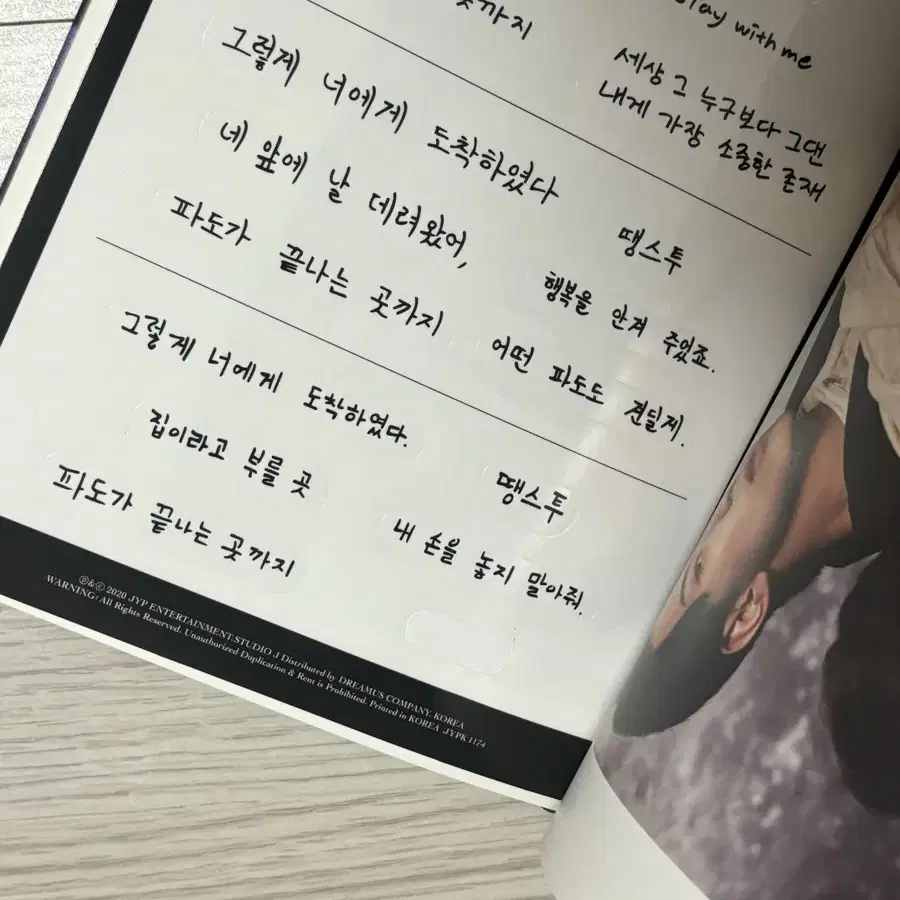 곳까지
with me
세상 그 누구보다 그댄
내게 가장 소중한 존재
그렇게 너에게 도착하였다
네 앞에 날 데려왔어,
파도가 끝나는 곳까지
땡스투
행복을 안겨 주었죠.
어떤 파도도 견딜게.
그렇게 너에게 도착하였다.
집이라고 부를 곳
파도가 끝나는 곳까지
땡스투
내 손을 놓지 말아줘.
℗&© 2020 JYP ENTERTAINMENT.STUDIO J Distributed by DREAMUS COMPANY. KOREA
WARNING: All Rights Reserved. Unauthorized Duplication & Rent is Prohibited. Printed in KOREA .JYPK1174